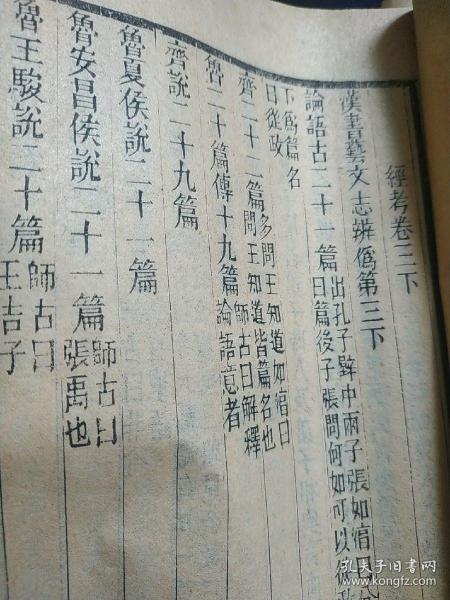 經考卷三下
漢書藝文志辨僞第三下
論語古二十一篇出孔子壁中兩子張如淳曰分
曰篇後子張問何如可以從政
下爲篇名
曰從政
齊二十二篇多問王知道如淳曰
問王知道皆篇名也
魯二十篇傳十九篇師古曰解釋
論語意者
齊說二十九篇
魯夏侯說二十一篇
魯安昌侯說二十一篇師古曰
張禹也
魯王駿說二十篇師古曰
王吉子
孔夫子旧书网
www.kongfz.com